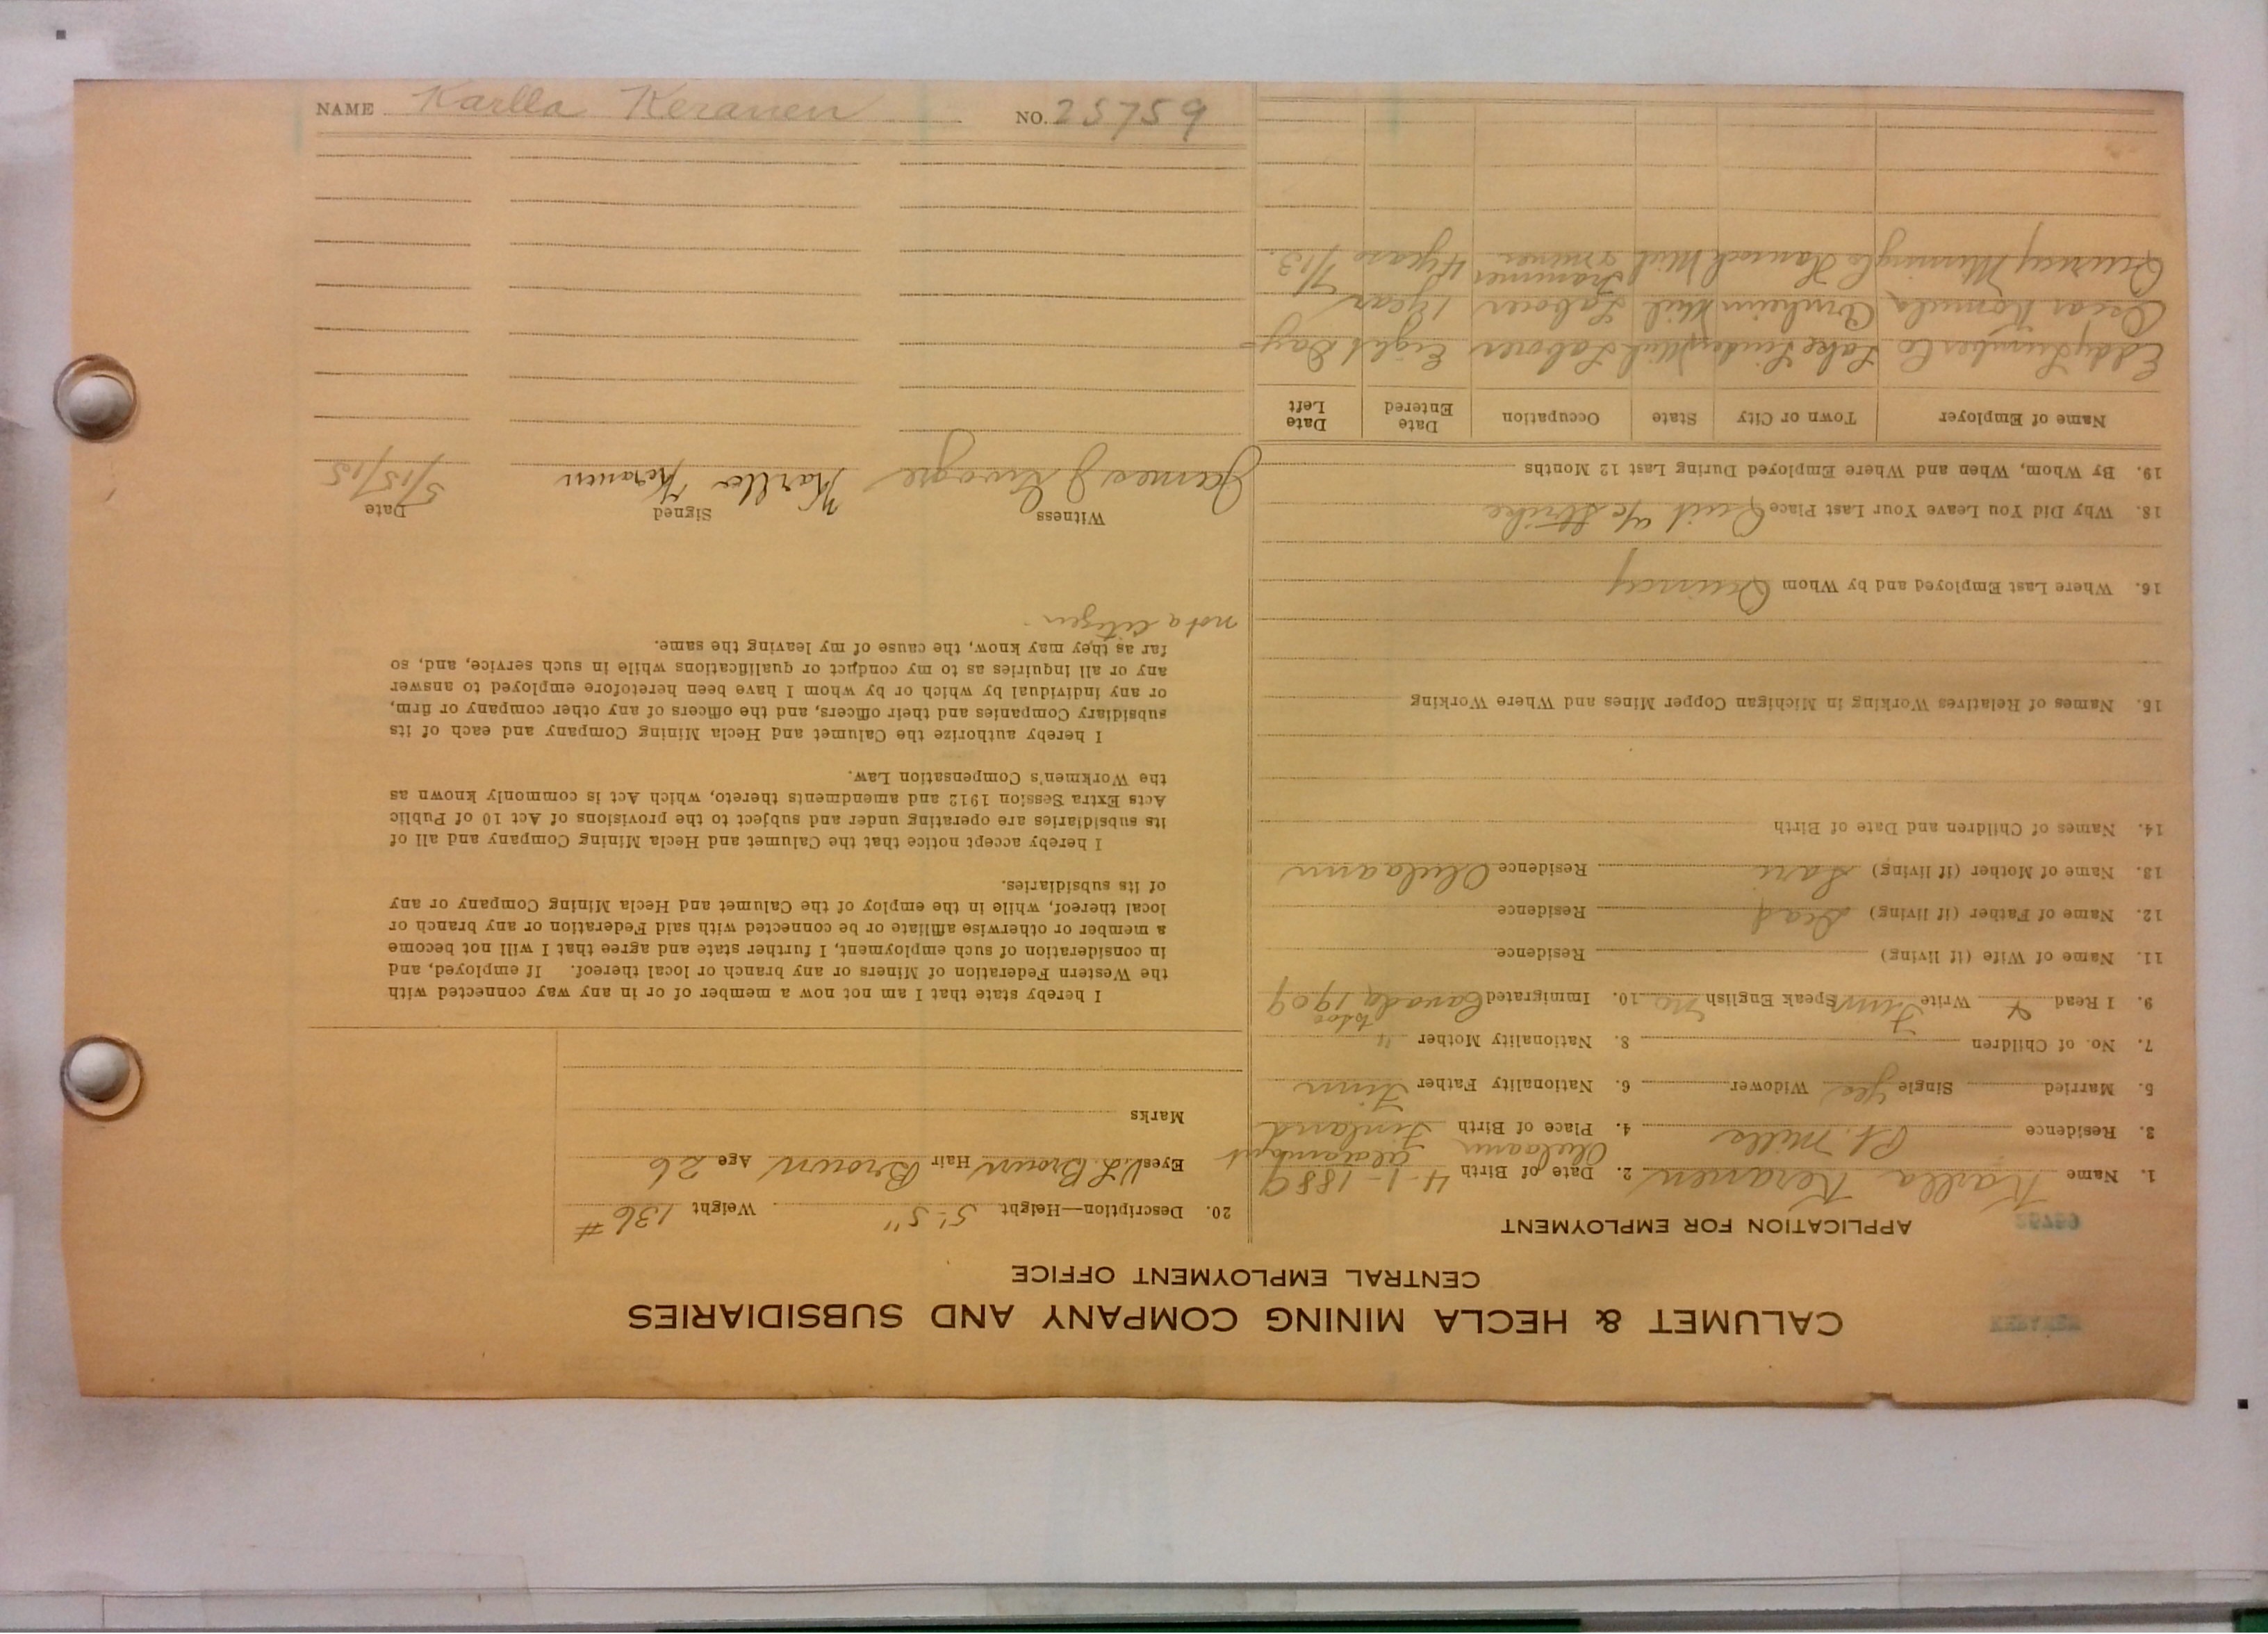 NAME Karlla Keranen NO. 25759
CALUMET & HECLA MINING COMPANY AND SUBSIDIARIES
CENTRAL EMPLOYMENT OFFICE
APPLICATION FOR EMPLOYMENT
1. Name Karlla Keranen 2. Date of Birth 4-1-1889
3. Residence Pt. Mills 4. Place of Birth Finland
5. Married Single Yes Widower 6. Nationality Father Finn
7. No. of Children 8. Nationality Mother "
9. I Read Write Finn Speak English no 10. Immigrated Canada 1909
11. Name of Wife (if living) Residence
12. Name of Father (if living) Dead Residence
13. Name of Mother (if living) Residence
14. Names of Children and Date of Birth
15. Names of Relatives Working in Michigan Copper Mines and Where Working
16. Where Last Employed and by Whom Quincy
18. Why Did You Leave Your Last Place Quit a/c Strike
19. By Whom, When and Where Employed During Last 12 Months
Name of Employer Town or City State Occupation Date Entered Date Left
Eddy Lumber Co Lake Linden Mich Laborer Eight Days
Oscar Arnheim Mich Laborer 1 year
Quincy Mining Co Hancock Mich Trammer & miner 4 years 7/13.
20. Description—Height 5'-5" Weight 136 #
Eyes Brown Hair Brown Age 26
Marks
I hereby state that I am not now a member of or in any way connected with
the Western Federation of Miners or any branch or local thereof. If employed, and
in consideration of such employment, I further state and agree that I will not become
a member or otherwise affiliate or be connected with said Federation or any branch or
local thereof, while in the employ of the Calumet and Hecla Mining Company or any
of its subsidiaries.
I hereby accept notice that the Calumet and Hecla Mining Company and all of
its subsidiaries are operating under and subject to the provisions of Act 10 of Public
Acts Extra Session 1912 and amendments thereto, which Act is commonly known as
the Workmen's Compensation Law.
I hereby authorize the Calumet and Hecla Mining Company and each of its
subsidiary Companies and their officers, and the officers of any other company or firm,
or any individual by which or by whom I have been heretofore employed to answer
any or all inquiries as to my conduct or qualifications while in such service, and, so
far as they may know, the cause of my leaving the same.
not a Citizen
Witness Signed Date
James J Karlla Keranen 5/15/15